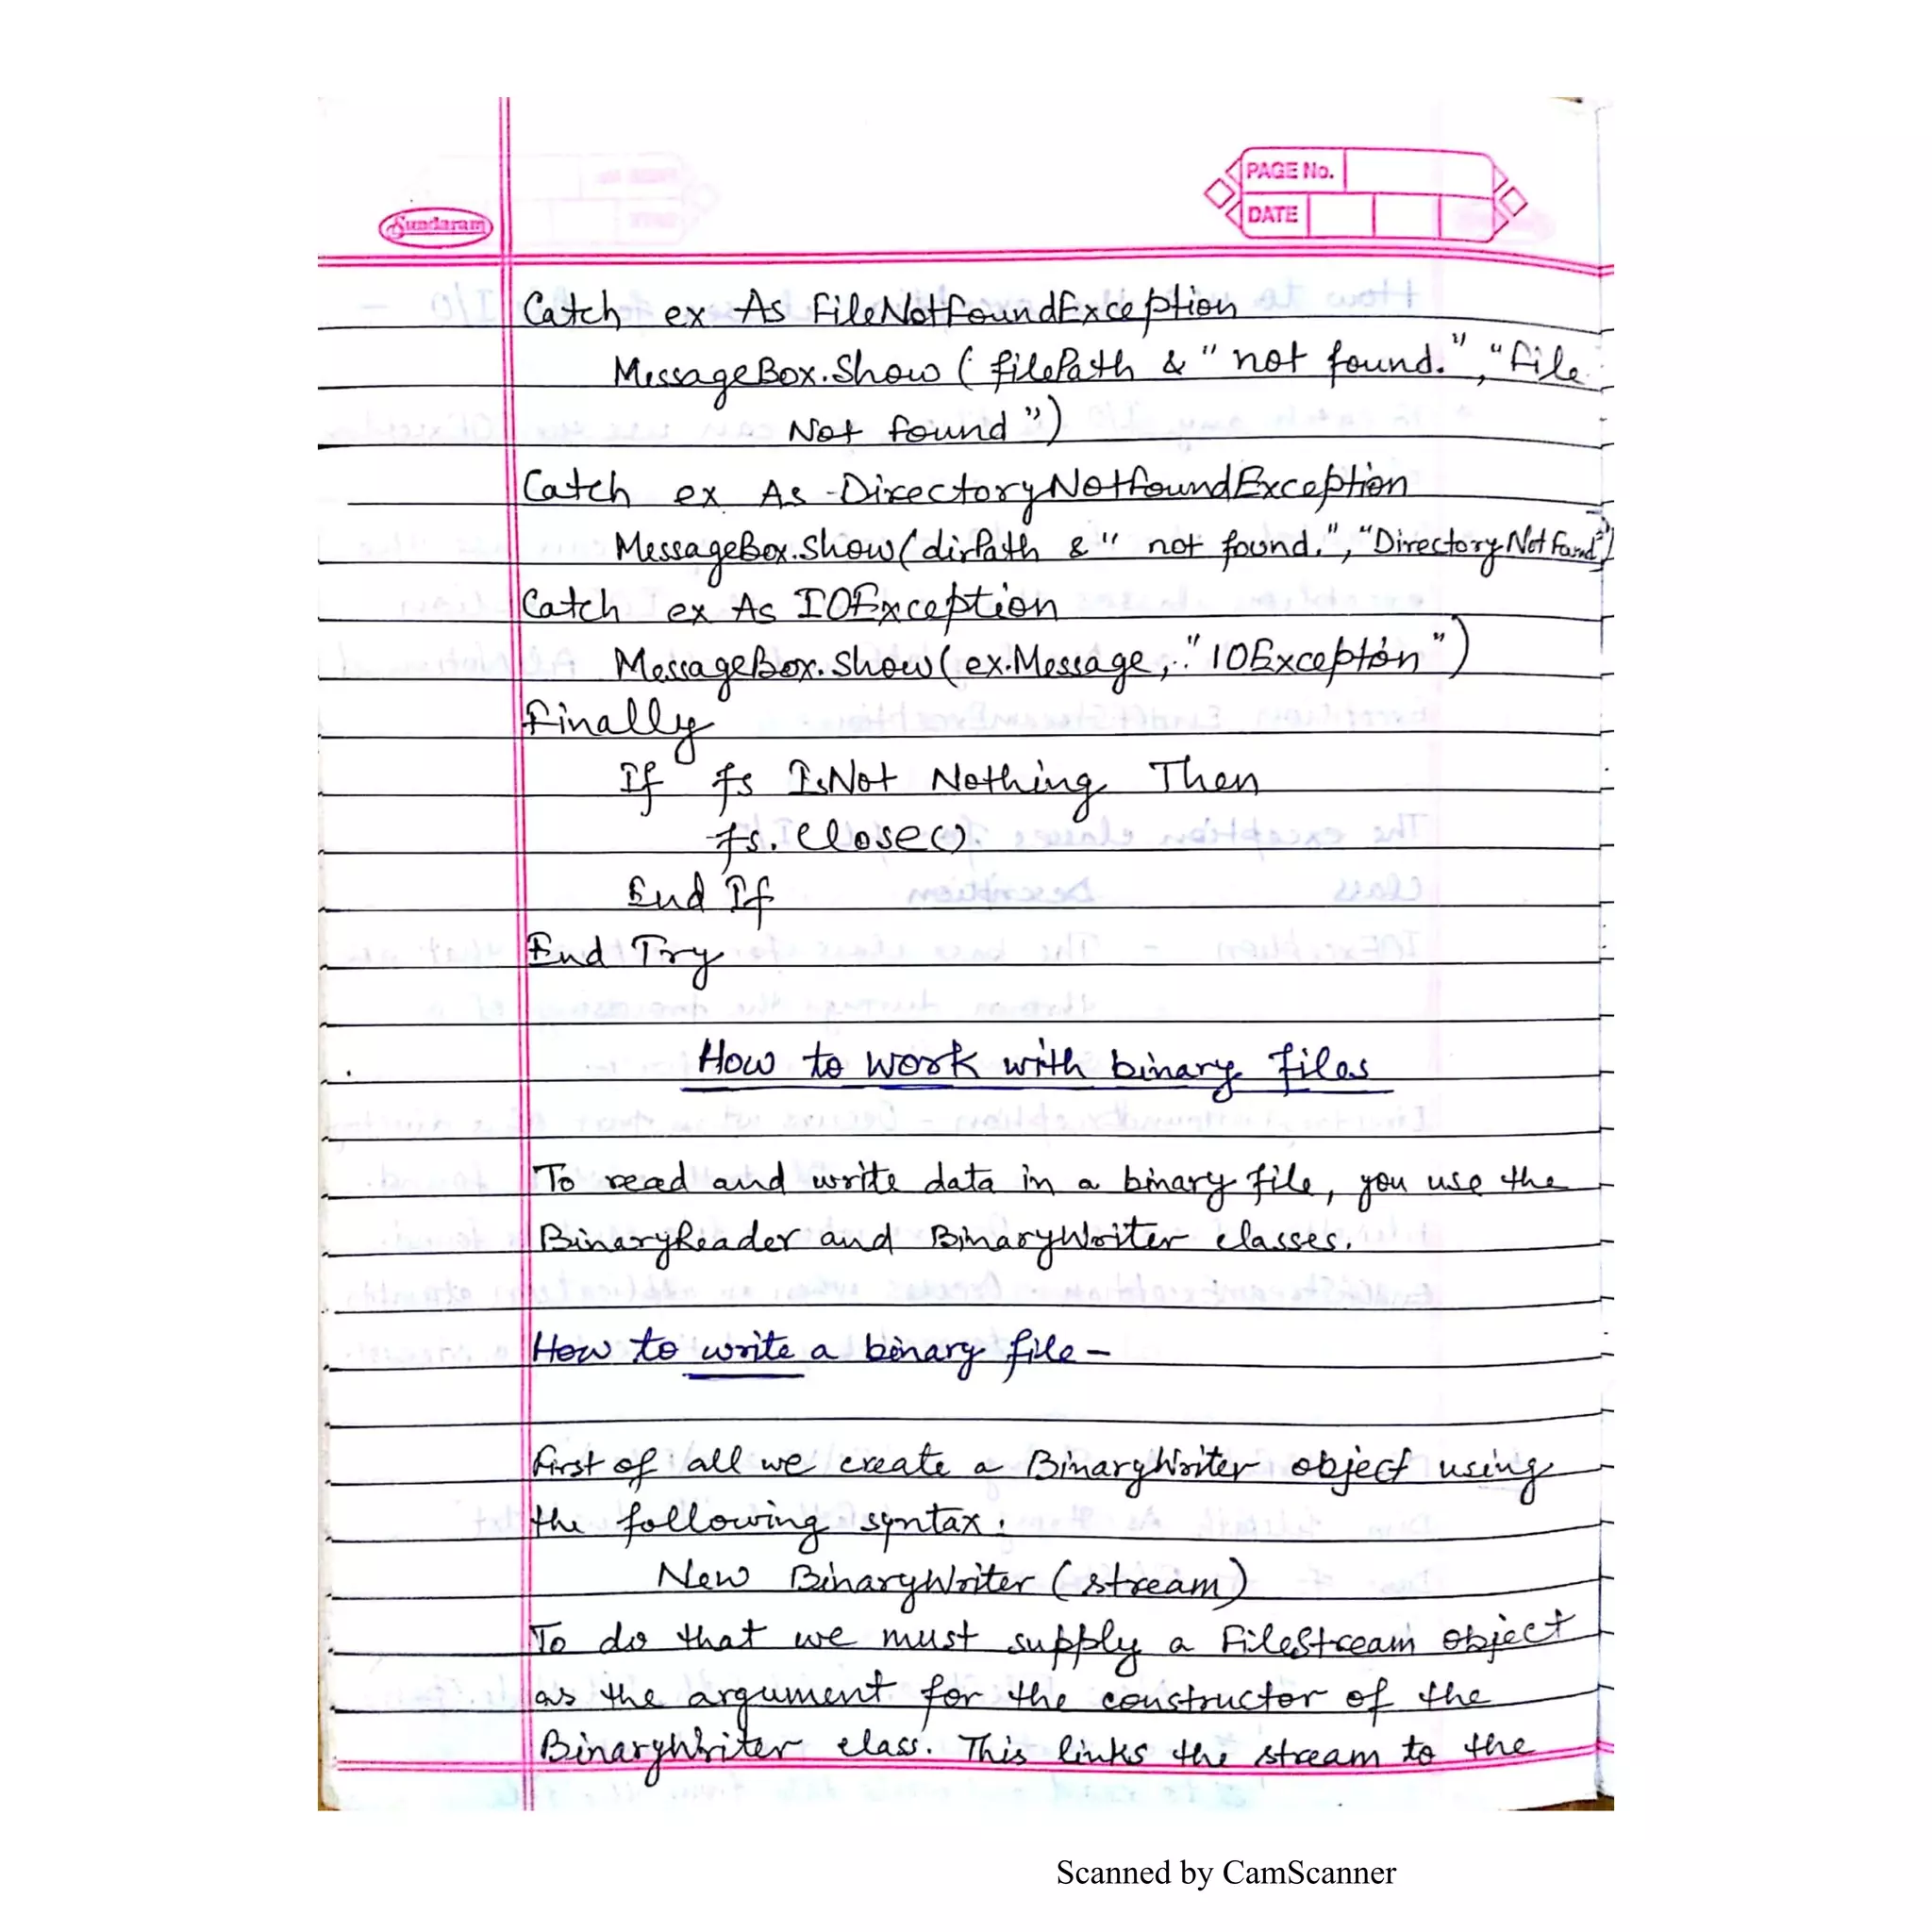 Sundaram
PAGE No.
DATE
Catch ex As FileNotFoundException
MessageBox.Show ( filePath & " not found.", "File
Not found ")
Catch ex As DirectoryNotFoundException
MessageBox.Show(dirPath & " not found.", "DirectoryNotFound")
Catch ex As IOException
MessageBox.Show(ex.Message, "IOExcepton ")
Finally
If fs IsNot Nothing Then
fs.Close()
End If
End Try
How to work with binary files
To read and write data in a binary file, you use the
BinaryReader and BinaryWriter classes.
How to write a binary file-
First of all we create a BinaryWriter object using
the following syntax:
New BinaryWriter (stream)
To do that we must supply a FileStream object
as the argument for the constructor of the
BinaryWriter class. This links the stream to the
Scanned by CamScanner